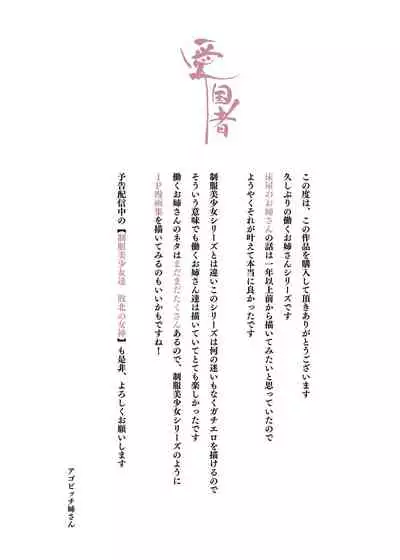 愛国者
この度は、この作品を購入して頂きありがとうございます
久しぶりの働くお姉さんシリーズです
床屋のお姉さんの話は一年以上前から描いてみたいと思っていたので
ようやくそれが叶えて本当に良かったです
制服美少女シリーズとは違いこのシリーズは何の迷いもなくガチエロを描けるので
そういう意味でも働くお姉さん達は描いていてとても楽しかったです
働くお姉さんのネタはまだまだたくさんあるので、制服美少女シリーズのように
1P漫画集を描いてみるのもいいかもですね！
予告配信中の【制服美少女達 敗北の女神】も是非、よろしくお願いします
アゴビッチ姉さん